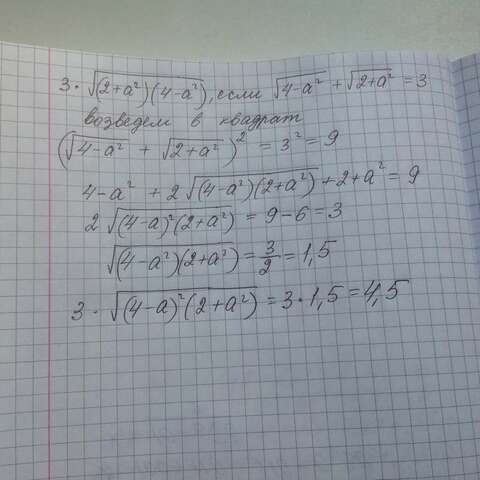 3 · √(2+a²)(4−a²), если √4−a² + √2+a² = 3
возведем в квадрат
(√4−a² + √2+a²)² = 3² = 9
4−a² + 2√(4−a²)(2+a²) + 2+a² = 9
2√(4−a)²(2+a²) = 9−6 = 3
√(4−a²)(2+a²) = 3/2 = 1,5
3 · √(4−a)²(2+a²) = 3·1,5 = 4,5